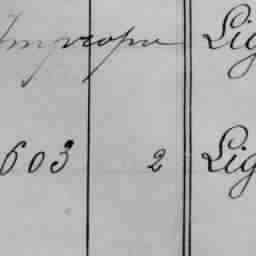 Imprope Lig
603 2 Lig